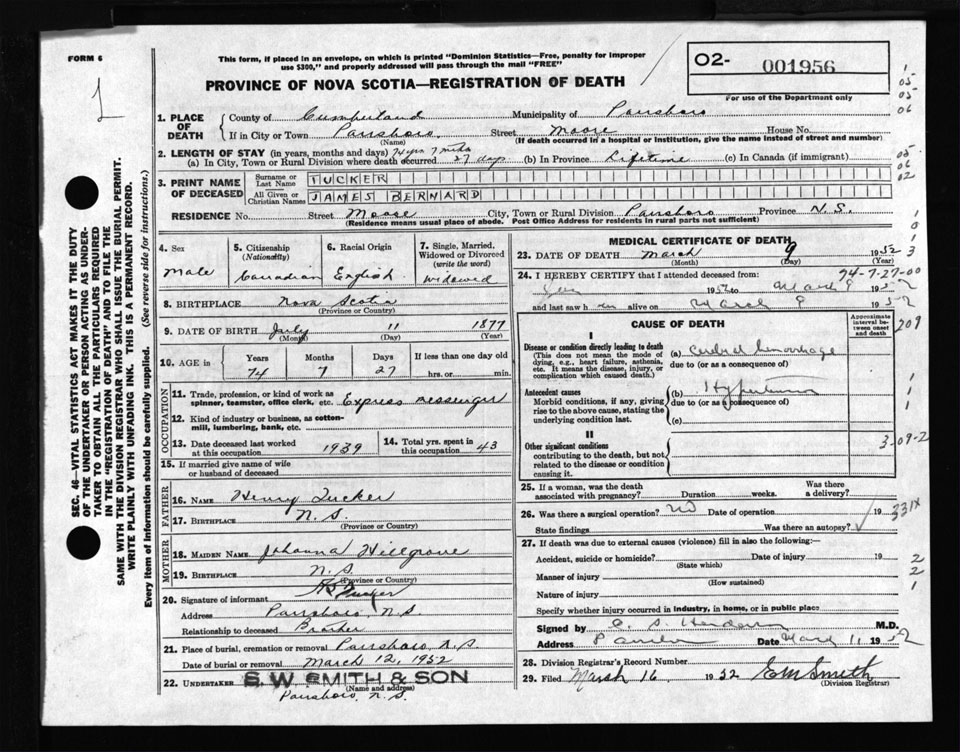 FORM 6
1
This form, if placed in an envelope, on which is printed "Dominion Statistics—Free, penalty for improper
use $300," and properly addressed will pass through the mail "FREE"
PROVINCE OF NOVA SCOTIA—REGISTRATION OF DEATH
02- 001956
For use of the Department only
SEC. 46—VITAL STATISTICS ACT MAKES IT THE DUTY
OF THE UNDERTAKER OR PERSON ACTING AS UNDER-
TAKER TO OBTAIN ALL THE PARTICULARS REQUIRED
IN THE "REGISTRATION OF DEATH" AND TO FILE THE
SAME WITH THE DIVISION REGISTRAR WHO SHALL ISSUE THE BURIAL PERMIT.
WRITE PLAINLY WITH UNFADING INK. THIS IS A PERMANENT RECORD.
Every item of Information should be carefully supplied. (See reverse side for instructions.)
1. PLACE OF DEATH
County of Cumberland Municipality of Parrsboro
If in City or Town Parrsboro. Street Moose House No.
(Name) (If death occurred in a hospital or institution, give the name instead of street and number)
2. LENGTH OF STAY (in years, months and days) 74 yrs 7 mths
(a) In City, Town or Rural Division where death occurred 27 days (b) In Province Lifetime (c) In Canada (if immigrant)
3. PRINT NAME OF DECEASED
Surname or Last Name TUCKER
All Given or Christian Names JAMES BERNARD
RESIDENCE No. Street Moose City, Town or Rural Division Parrsboro Province N.S.
(Residence means usual place of abode. Post Office Address for residents in rural parts not sufficient)
4. Sex Male
5. Citizenship (Nationality) Canadian
6. Racial Origin English
7. Single, Married, Widowed or Divorced (write the word) widowed
8. BIRTHPLACE Nova Scotia
(Province or Country)
9. DATE OF BIRTH July 11 1877
(Month) (Day) (Year)
10. AGE in Years Months Days If less than one day old
74 7 27 hrs. or min.
OCCUPATION
11. Trade, profession, or kind of work as
spinner, teamster, office clerk, etc. Express messenger
12. Kind of industry or business, as cotton-
mill, lumbering, bank, etc.
13. Date deceased last worked
at this occupation 1939
14. Total yrs. spent in
this occupation 43
15. If married give name of wife
or husband of deceased
FATHER
16. NAME Henry Tucker
17. BIRTHPLACE N.S.
(Province or Country)
MOTHER
18. MAIDEN NAME Johanna Hillgrove
19. BIRTHPLACE N.S.
(Province or Country)
20. Signature of informant Tucker
Address Parrsboro, N.S.
Relationship to deceased Brother
21. Place of burial, cremation or removal Parrsboro, N.S.
Date of burial or removal March 12, 1952
22. UNDERTAKER S. W. SMITH & SON
(Name and address)
Parrsboro, N.S.
MEDICAL CERTIFICATE OF DEATH
23. DATE OF DEATH March 9 1952
(Month) (Day)
74-7-27-00
24. I HEREBY CERTIFY that I attended deceased from:
Jan 1952 to March 9 1952
and last saw h im alive on March 9 1952
CAUSE OF DEATH
Approximate interval between onset and death
I
Disease or condition directly leading to death
(This does not mean the mode of
dying, e.g., heart failure, asthenia,
etc. It means the disease, injury, or
complication which caused death.)
(a) Cerebral hemorrhage
due to (or as a consequence of)
Antecedent causes
Morbid conditions, if any, giving
rise to the above cause, stating the
underlying condition last.
(b) Hypertension
due to (or as a consequence of)
(c)
II
Other significant conditions
contributing to the death, but not
related to the disease or condition
causing it.
209
3-09-2
25. If a woman, was the death
associated with pregnancy? Duration weeks. Was there a delivery?
26. Was there a surgical operation? No Date of operation 19
State findings Was there an autopsy?
331X
27. If death was due to external causes (violence) fill in also the following:—
Accident, suicide or homicide? Date of injury 19
(State which)
Manner of injury
(How sustained)
Nature of injury
Specify whether injury occurred in industry, in home, or in public place
Signed by M.D.
Address Date March 11 1952
28. Division Registrar's Record Number
29. Filed March 16 1952 EM Smith
(Division Registrar)